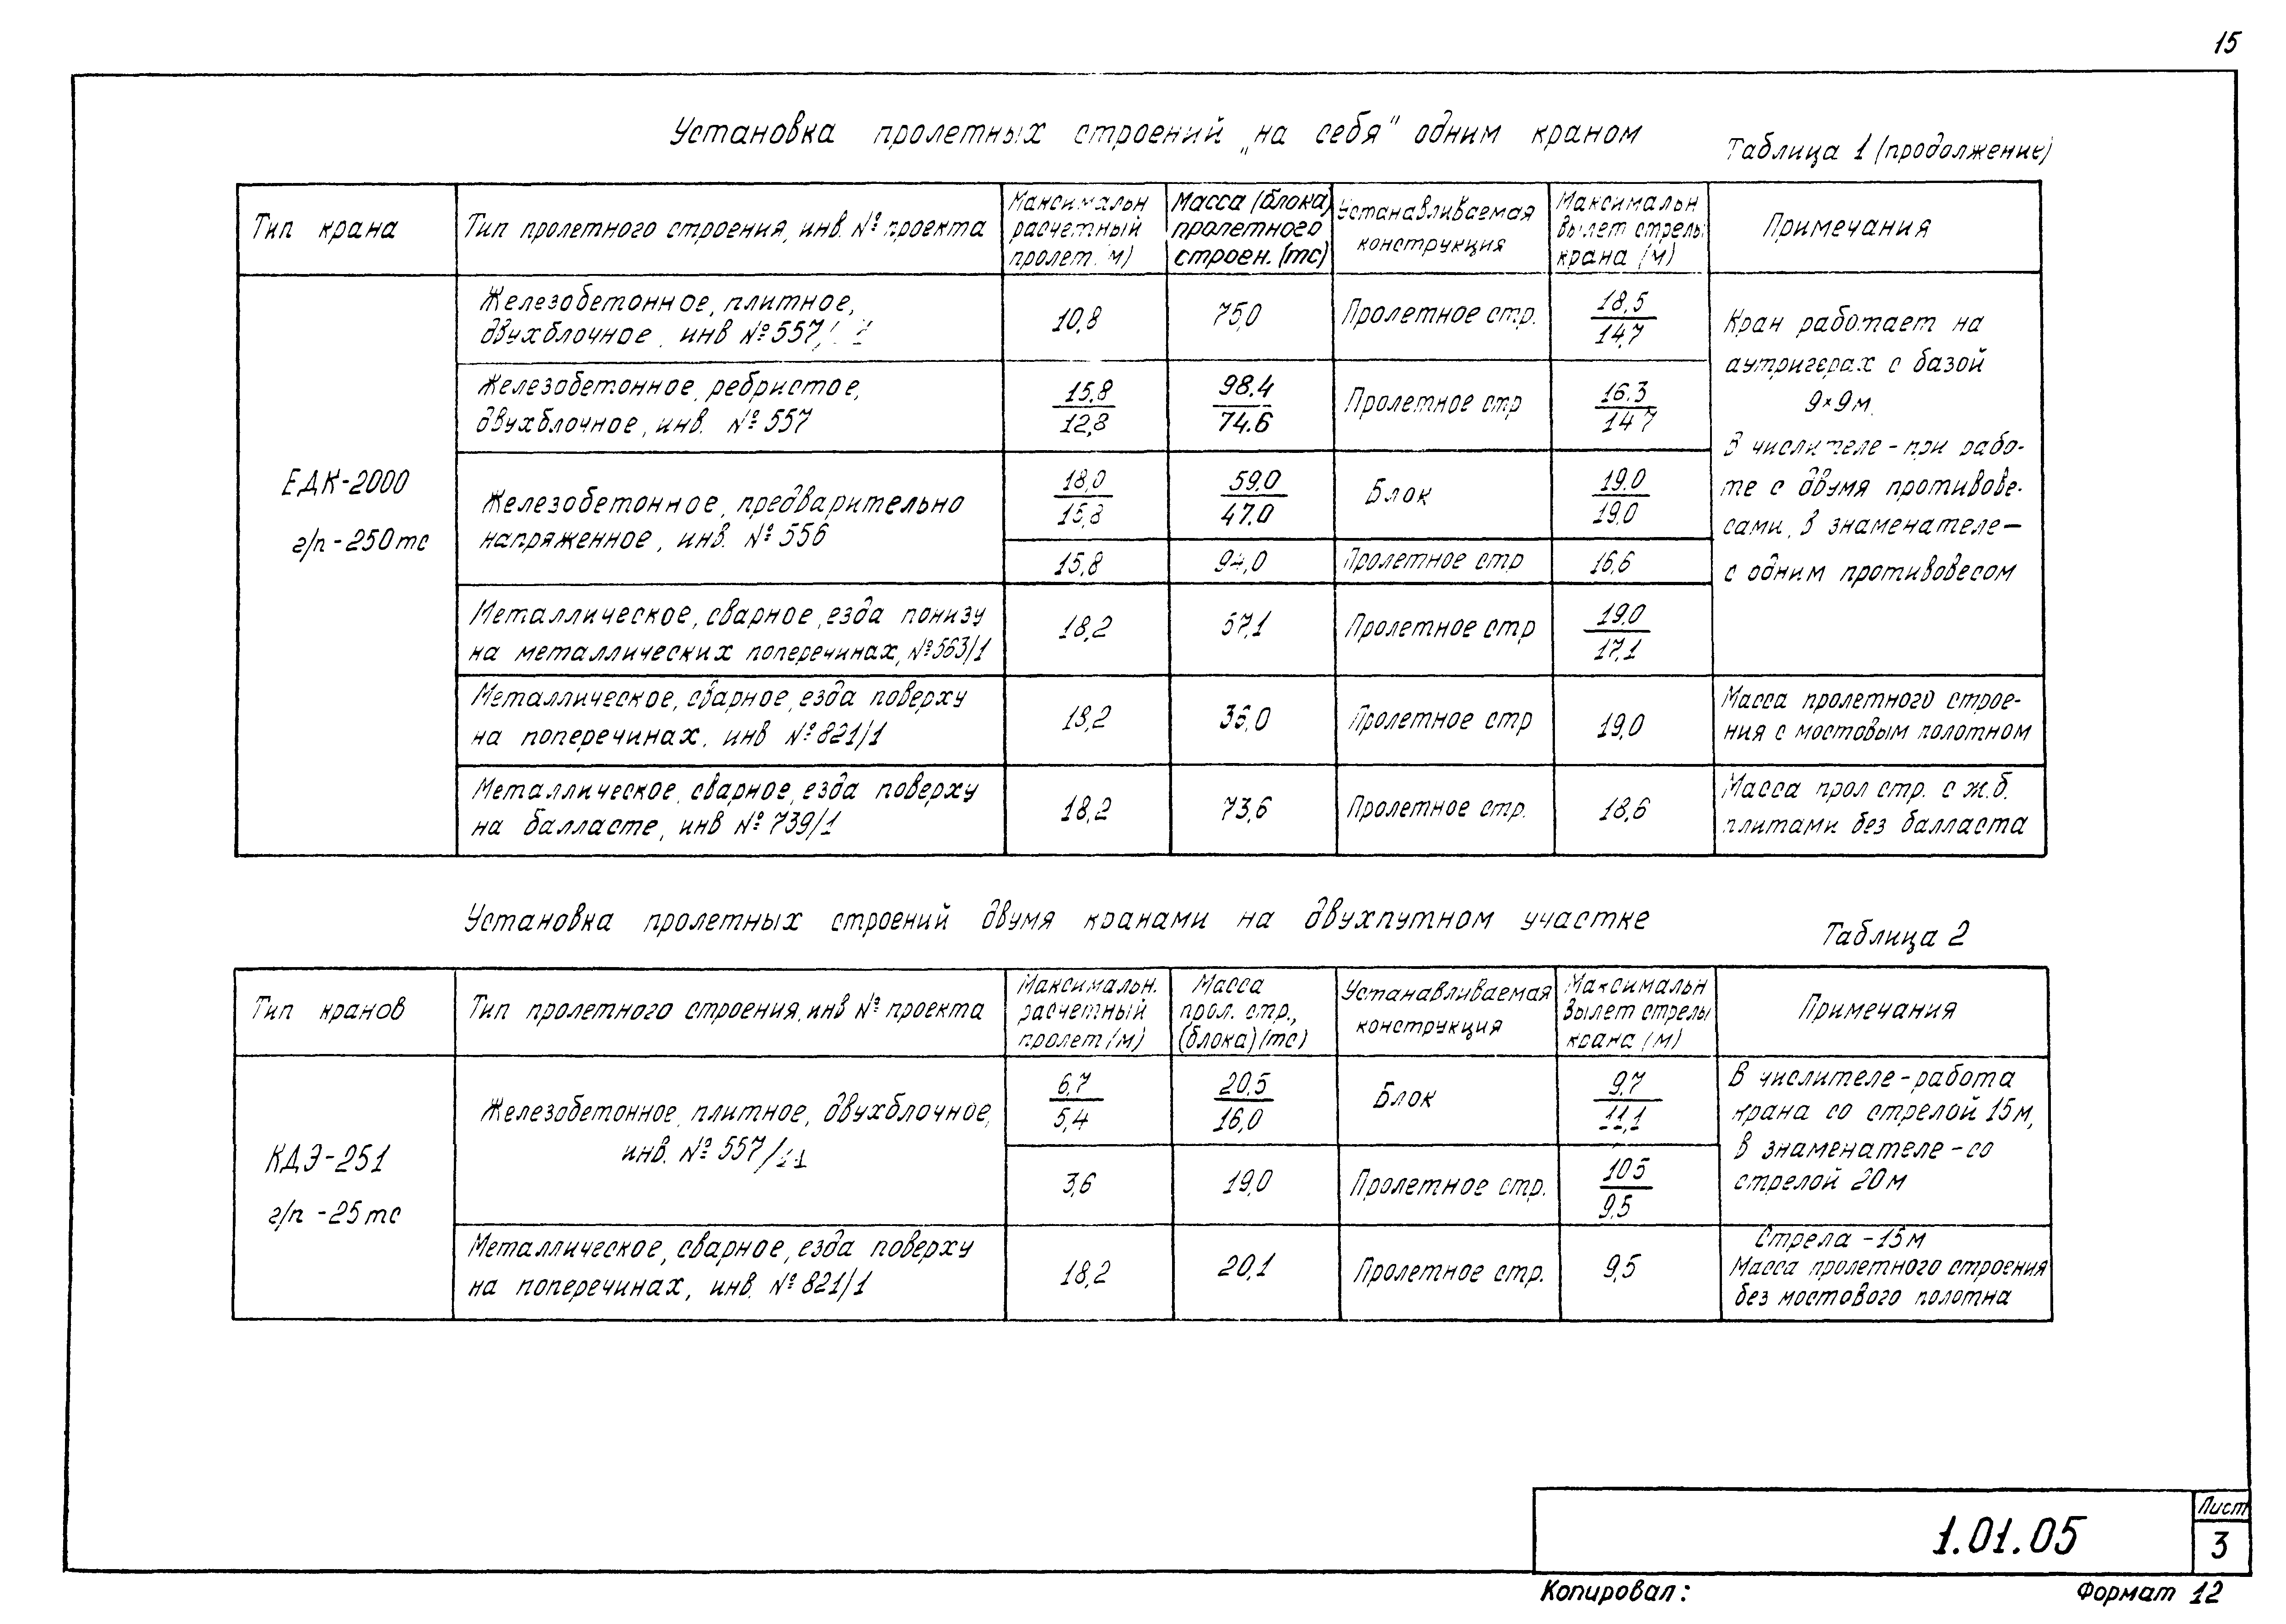 15
Установка пролетных строений „на себя" одним краном
Таблица 1 (продолжение)
Тип крана
Тип пролетного строения, инв. № проекта
Максимальн
расчетный
пролет (м)
Масса (блока)
пролетного
строен. (тс)
Устанавливаемая
конструкция
Максимальн
вылет стрелы
крана (м)
Примечания
ЕДК-2000
г/п - 250 тс
Железобетонное, плитное,
двухблочное, инв № 557/
10,8
75,0
Пролетное стр.
18,5
14,7
Кран работает на
аутригерах с базой
9×9 м.
В числителе - при рабо-
те с двумя противове-
сами, в знаменателе —
с одним противовесом
Железобетонное, ребристое,
двухблочное, инв. № 557
15,8
12,8
98.4
74.6
Пролетное стр
16.3
14 7
Железобетонное, предварительно
напряженное, инв. № 556
18,0
15,8
59.0
47.0
Блок
19.0
19.0
15,8
94,0
Пролетное стр
16,6
Металлическое, сварное, езда понизу
на металлических поперечинах, № 563/1
18,2
57,1
Пролетное стр
19,0
17,1
Металлическое, сварное, езда поверху
на поперечинах, инв № 821/1
18,2
36,0
Пролетное стр
19,0
Масса пролетного строе-
ния с мостовым полотном
Металлическое, сварное, езда поверху
на балласте, инв № 739/1
18,2
73,6
Пролетное стр.
18,6
Масса прол стр. с ж.б.
плитами без балласта
Установка пролетных строений двумя кранами на двухпутном участке
Таблица 2
Тип кранов
Тип пролетного строения, инв № проекта
Максимальн.
расчетный
пролет (м)
Масса
прол. стр.,
(блока) (тс)
Устанавливаемая
конструкция
Максимальн
вылет стрелы
крана (м)
Примечания
КДЭ-251
г/п - 25 тс
Железобетонное, плитное, двухблочное,
инв. № 557/11
6,7
5,4
20,5
16,0
Блок
9,7
11,1
В числителе - работа
крана со стрелой 15 м,
в знаменателе - со
стрелой 20 м
3,6
19,0
Пролетное стр.
10 5
9,5
Металлическое, сварное, езда поверху
на поперечинах, инв. № 821/1
18,2
20,1
Пролетное стр.
9,5
Стрела - 15 м
Масса пролетного строения
без мостового полотна
1.01.05
Лист
3
Копировал:
Формат 12